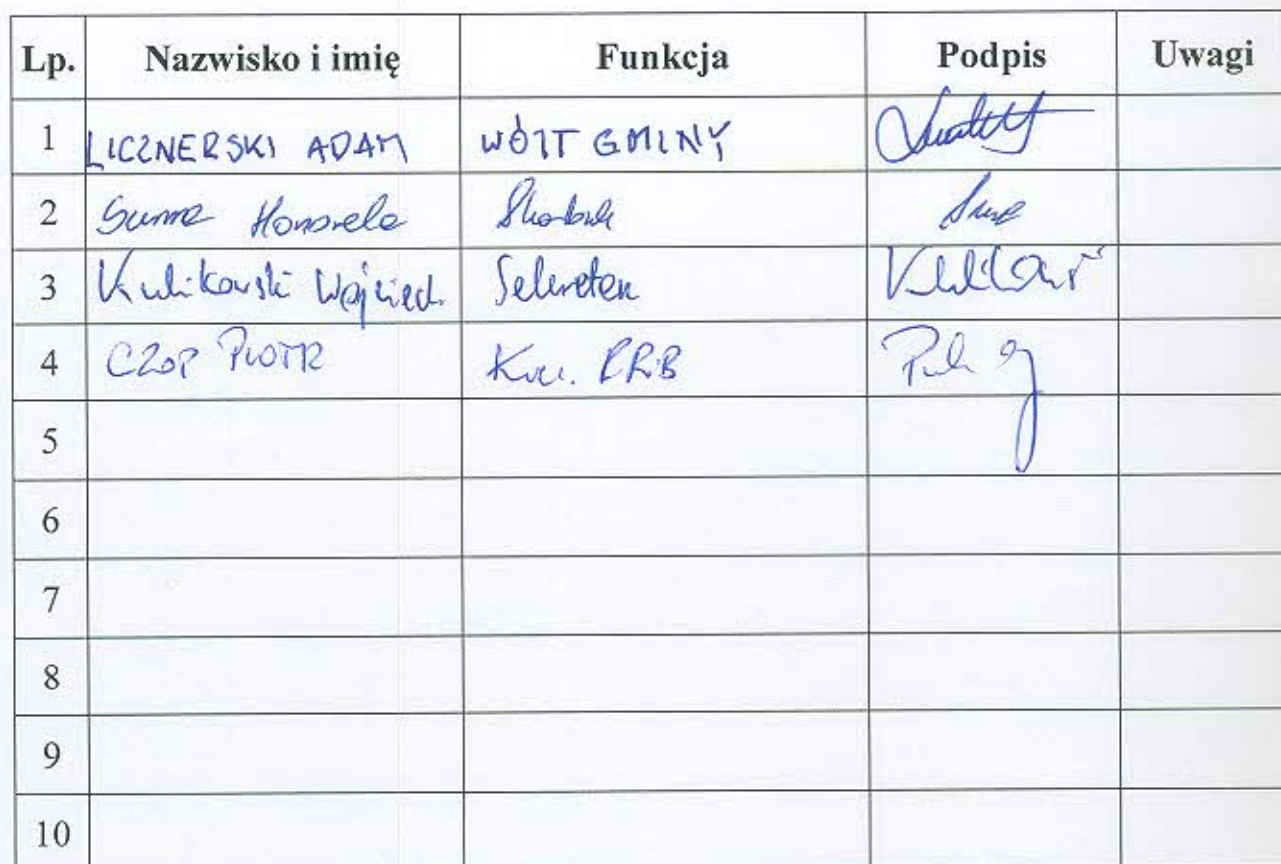 Lp. Nazwisko i imię Funkcja Podpis Uwagi
1 LICZNERSKI ADAM WÓJT GMINY
2 Honorata Skarbnik
3 Kulikowski Wojciech Sekretarz
4 CZOP PIOTR
5
6
7
8
9
10